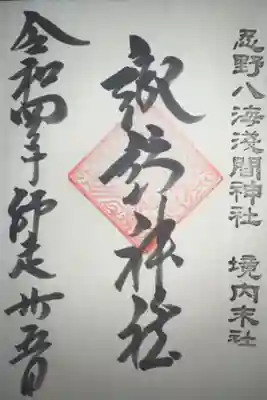 忍野八海淺間神社 境内末社
諏訪神社
令和四年師走廿五日